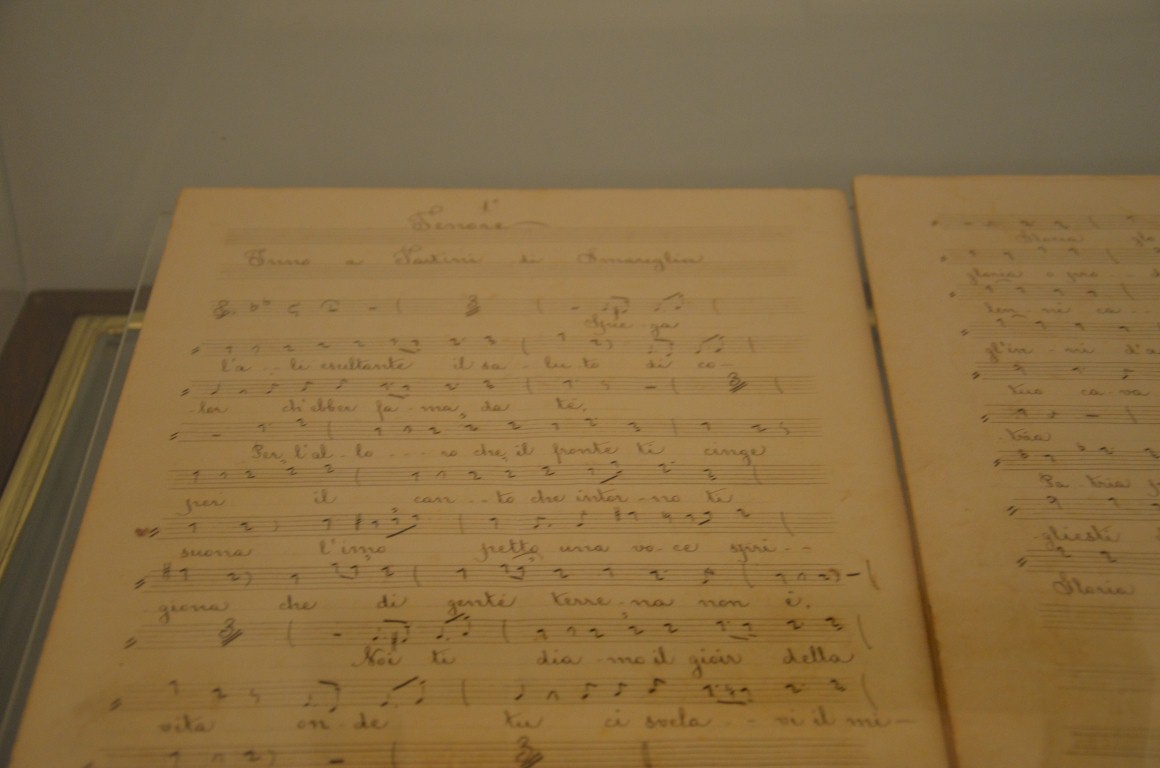 1º
Tenore
Inno a Tartini di Smareglia
Spie-ga
l'a - - li esultante il sa - lu-to di co-
-lor ch'ebber fa-ma, da te.
Per l'al-lo - - - ro che, il fronte ti cinge
per il can - - to che intor-no ti
suona l'imo petto una vo-ce spri - -
giona che di gente terre-na non è.
Noi ti dia-mo il gioir della
vita on-de tu ci svela - - vi il mi-
Gloria glo
gloria
len-ni ca
gl'in-ni d'a
tuo ca-va
-tria
Pa-tria
-gliesti
Gloria